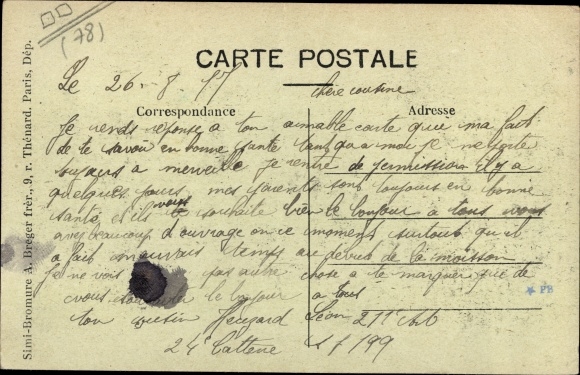 (78)
CARTE POSTALE
Le 26-8-17
chère cousine
Correspondance
Adresse
Je rends réponse a ton aimable carte qui ma fait
de te savoir en bonne santé tant qua moi je me porte
toujours a merveille je rentre de permission il y a
quelques jours mes parents sont toujours en bonne
santé et ils vous souhaite bien le bonjour à tous vous
avez beaucoup d'ouvrage en ce moment surtout qu'il
a fait mauvais temps au début de la moisson
Je ne vois pas autre chose a te marquer que de
vous le bonjour a tous
ton cousin Léon 211e
24e Batterie
S P 199
Simi-Bromure A. Breger frèr., 9, r. Thénard, Paris, Dép.
PB